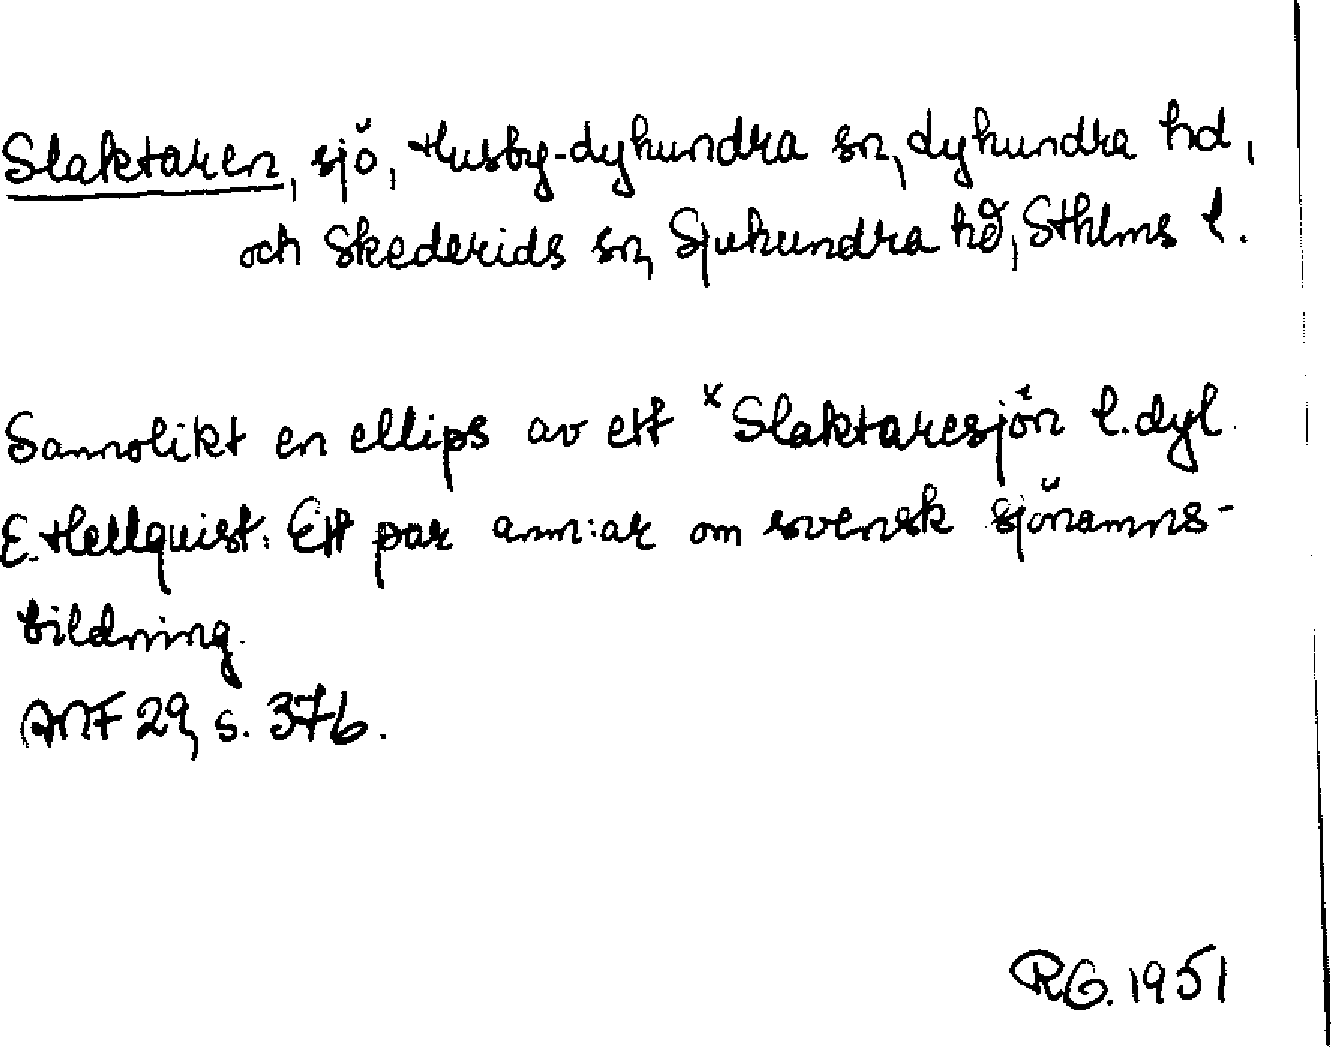 Slaktaren, sjö, Husby-dyhundra sn, dyhundra hd,
och Skederids sn, Sjuhundra hd, Sthlms l.
Sannolikt en ellips av ett ˣSlaktaresjön l.dyl.
E. Hellquist: Ett par anm:ar om svensk sjönamns-
bildning.
ANF 29, s. 376.
RG. 1951